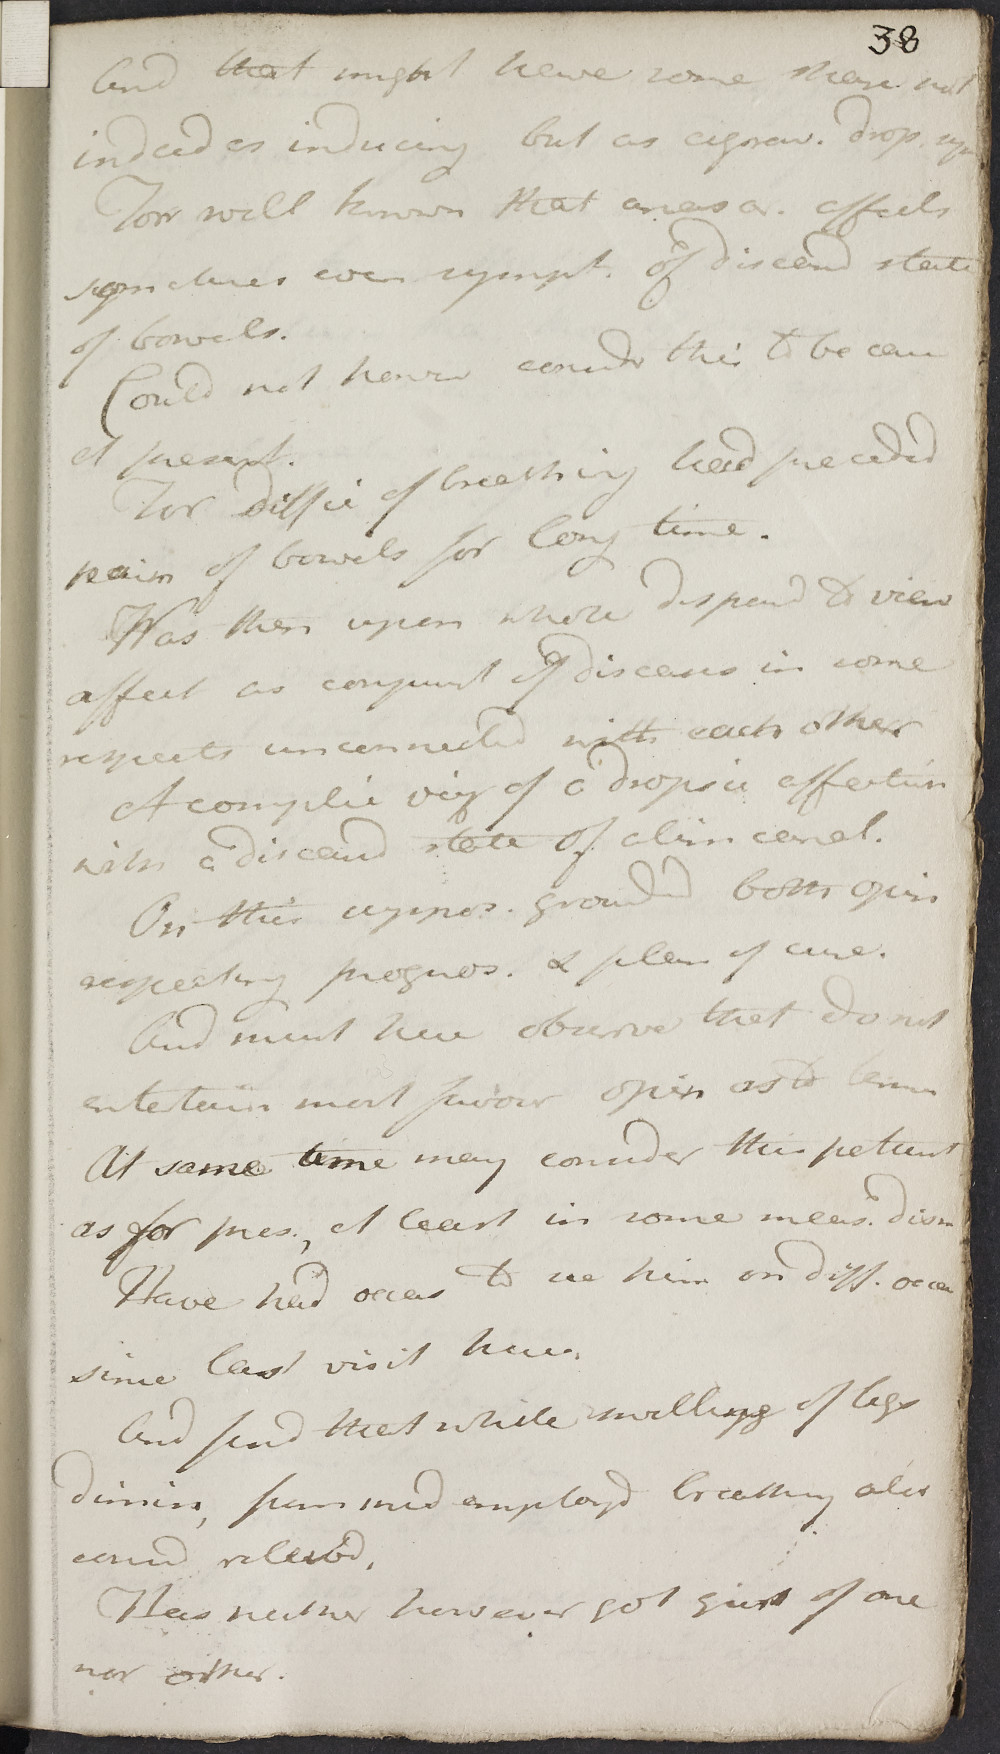 38
And that might have some share not
indeed as inducing but as aggrav. drop. sym
For well known that anasar. affects
sometimes even sympt. of diseasd state
of bowels.
Could not however consider this to be case
at present.
For diffic of breathing had preceded
pain of bowels for long time.
Was then upon whole disposd to view
affect as conjunct of diseases in some
respects unconnected with each other
A complic viz of a dropsic affection
with a diseasd state of alim canal.
On this suppos. groundd both opin
respecting prognos. & plan of cure.
And must here observe that do not
entertain most favour opin as to termin
At same time may consider this patient
as for pres., at least in some meas. dism
Have had occas to see him on diff. occas
since last visit here.
And find that while swelling of legs
dimin, from med employd breathing also
consid relievd.
Has neither however got quit of one
nor other.